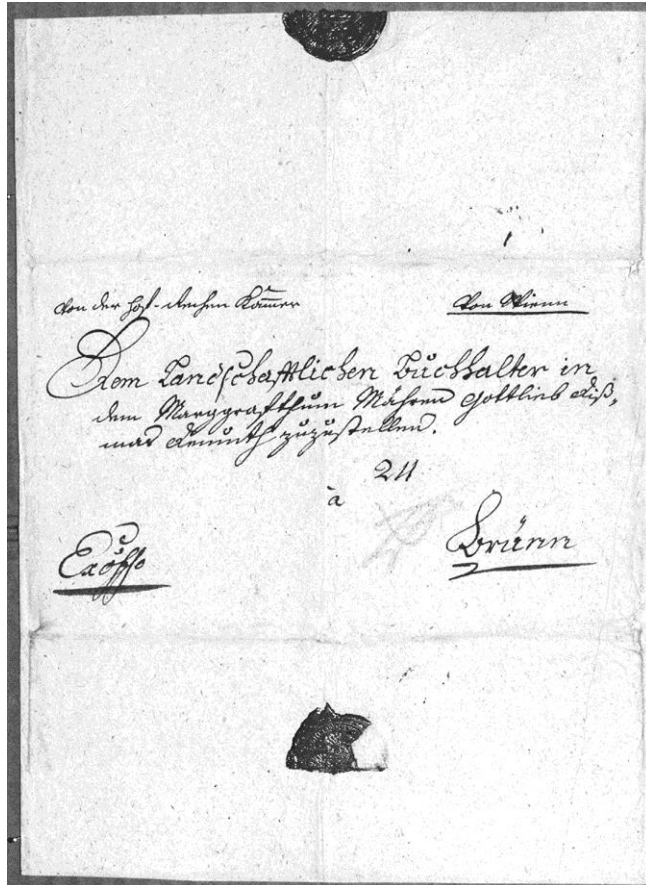 Von der Hof-Rechen Kam̅er
Von Wienn
Dem Landschafftlichen Buchhalter in
dem Marggrafthum Mähren Gottlieb
zuzustellen.
211
à
Brünn
Exoffo